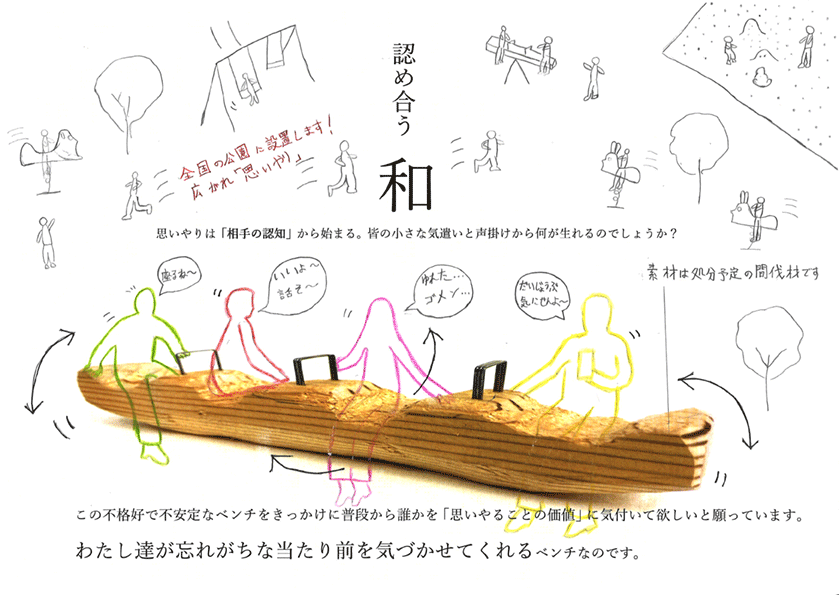 認め合う
和
全国の公園に設置します！
広がれ「思いやり」
思いやりは「相手の認知」から始まる。皆の小さな気遣いと声掛けから何が生れるのでしょうか？
座るね〜
いいよ〜
話そ〜
ゆれた…
ゴメン…
だいじょうぶ
気にせんよ〜
素材は処分予定の間伐材です
この不格好で不安定なベンチをきっかけに普段から誰かを「思いやることの価値」に気付いて欲しいと願っています。
わたし達が忘れがちな当たり前を気づかせてくれるベンチなのです。